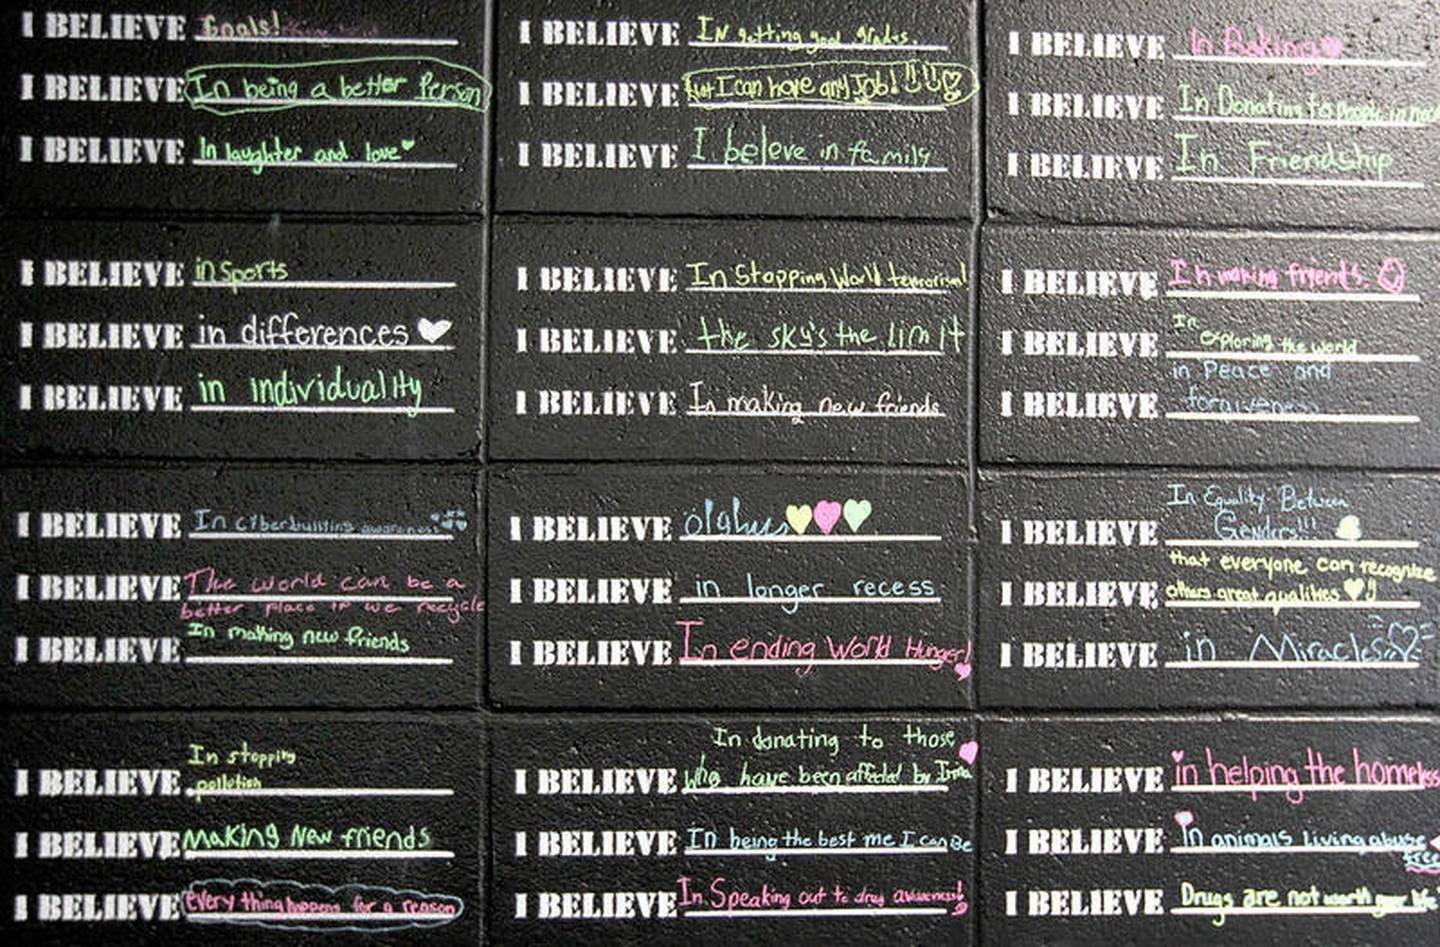 I BELIEVE Goals!
I BELIEVE In being a better Person
I BELIEVE In laughter and love
I BELIEVE in sports
I BELIEVE in differences
I BELIEVE in individuality
I BELIEVE In cyberbulling awareness
I BELIEVE The world can be a
better place if we recycle
I BELIEVE In making new friends
In stopping
I BELIEVE pollution
I BELIEVE MaKing New friends
I BELIEVE every thing happens for a reason
I BELIEVE IN getting good grades.
I BELIEVE that I can have any Job!
I BELIEVE I beleve in family
I BELIEVE In Stopping World terrorism!
I BELIEVE the sky's the limit
I BELIEVE In making new friends
I BELIEVE
I BELIEVE in longer recess
I BELIEVE In ending World Hunger!
In donating to those
I BELIEVE who have been affected by Irma
I BELIEVE In being the best me I can Be
I BELIEVE In Speaking out to drug awareness!
I BELIEVE In Baking
I BELIEVE In Donating to people in
I BELIEVE In Friendship
I BELIEVE In making friends.
In
I BELIEVE exploring the world
in Peace and
I BELIEVE forgiveness
In Equality Between
I BELIEVE Genders!!!
that everyone can recognize
I BELIEVE others great qualities
I BELIEVE in Miracles
I BELIEVE in helping the homeless
I BELIEVE In animals living abuse
free
I BELIEVE Drugs are not worth your life